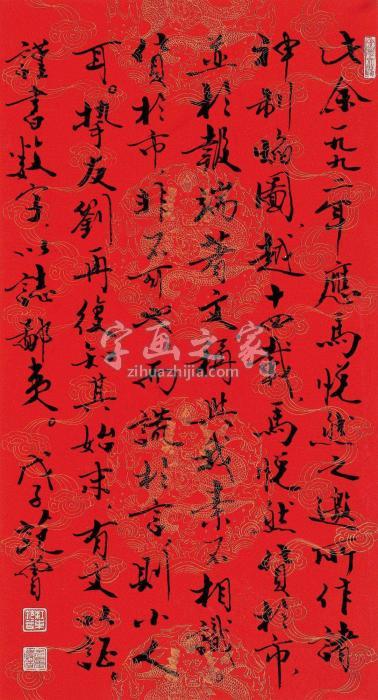 此余一九九二年應馬悅然之邀所作諸
神制醜圖越十四載馬悅然賃於市
並於報端著文稱與我素不相識。
賃於市非不可也而謊於言則小人
耳。摯友劉再復知其始末有文以証。
謹書數字以誌鄙夷。戊子范曾
字画之家
zihuazhijia.com